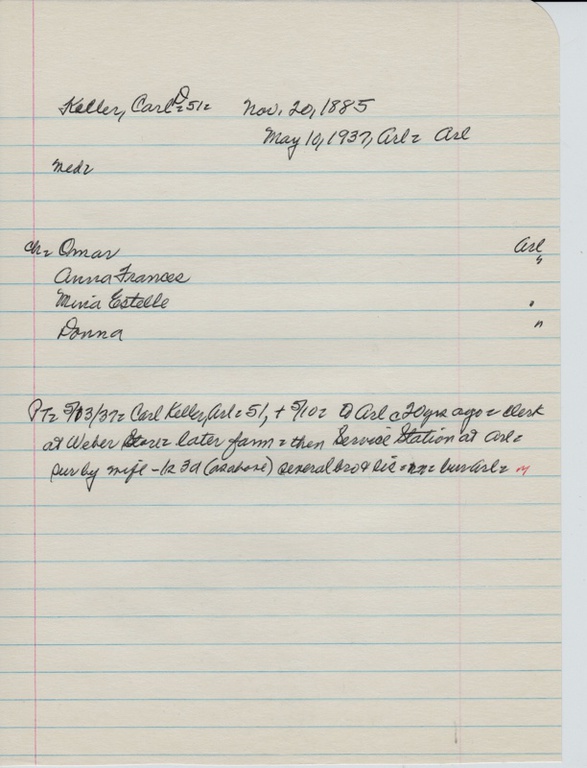 Keller, Carl D = 51 = Nov. 20, 1885
May 10, 1937, Arl = Arl
med =
ch = Omar Arl
Anna Frances "
Miria Estelle "
Donna "
PT = 5/13/37 = Carl Keller, Arl = 51, + 5/10 = to Arl c 20 yrs ago = clerk
at Weber Store = later farm = then Service Station at Arl =
sur by wife - 1s 3d (as above) several bro & sis = = bur Arl =